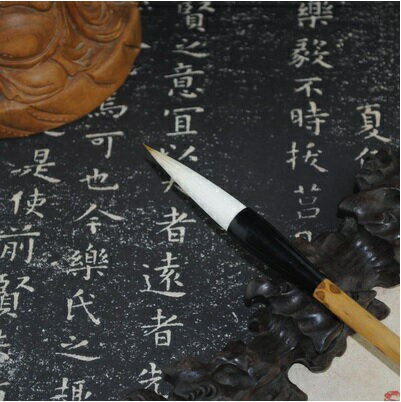 夏
樂毅不時拔莒
賢之意宜以
者遠者先
焉可也今樂氏之趣
是使前賢